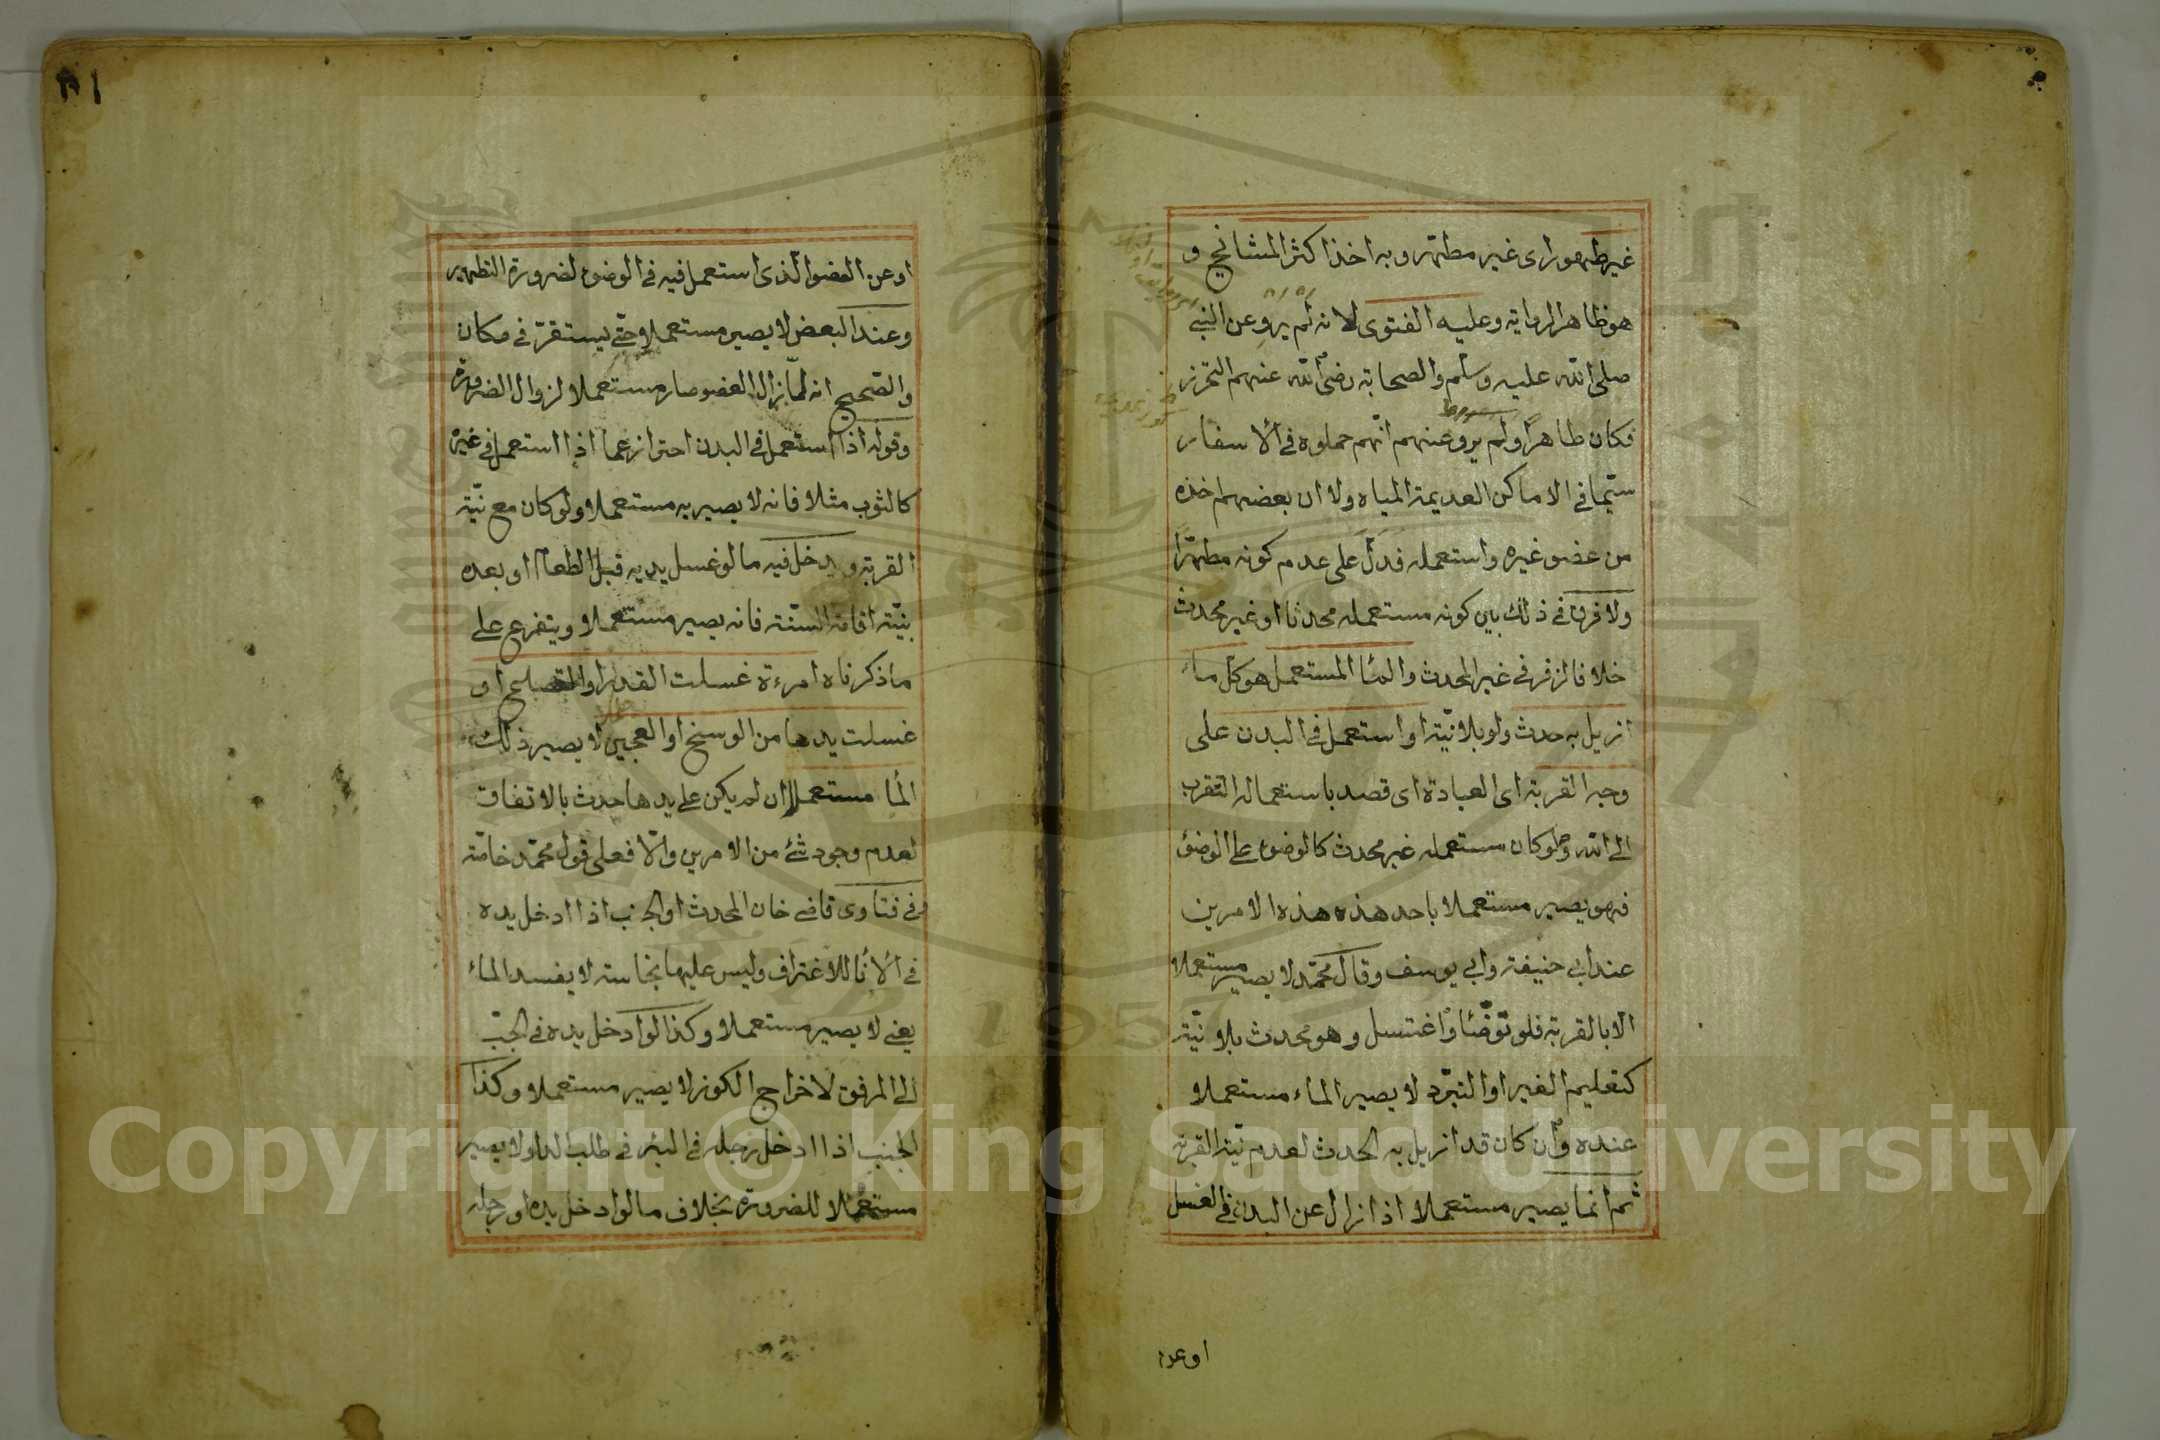 غير طهور اى غير مطهّر وبه اخذ اكثر المشائخ و
هو ظاهر الرواية وعليه الفتوى لانه لم يرو عن النبي
صلى الله عليه وسلّم والصحابة رضى الله عنهم التحرز
فكان طاهرا ولم يرو عنهم انّهم حملوه في الاسفار
سيّما في الاماكن العديمة المياه ولا ان بعضهم اخذه
من عضو غيره واستعمله فدلّ على عدم كونه مطهّرا
ولا فرق في ذلك بين كونه مستعمله محدثا او غير محدث
خلافا لزفر في غير المحدث والمآ المستعمل هو كلّ ماء
ازيل به حدث ولو بلا نيّة او استعمل في البدن على
وجه القربة اى العبادة اى قصد باستعماله التقرب
الى الله ولو كان مستعمله غير محدث كالوضوء على الوضوء
فهو يصير مستعملا باحد هذه هذه الامرين
عند ابي حنيفة وابي يوسف وقال محمّد لا يصير مستعملا
الّا بالقربة فلو توضّئا واغتسل وهو محدث بلا نيّة
كتعليم الغير او التبرّد لا يصير الماء مستعملا
عنده وان كان قد ازيل به الحدث لعدم نيّة القربة
ثم انما يصير مستعملا اذا زال عن البدن في الغسل
او عن
او عن العضو الّذى استعمل فيه في الوضوء لضرورة التطهير
وعند البعض لا يصير مستعملا حتّى يستقرّ في مكان
والصّحيح انه لمّا زال العضو صار مستعملا لزوال الضرورة
وقوله اذا استعمل في البدن احتراز عما اذا استعمل في غيره
كالثوب مثلا فانه لا يصير به مستعملا ولو كان مع نيّة
القربة ويدخل فيه ما لو غسل يديه قبل الطعام او بعده
بنيّة اقامة السنّة فانه يصير مستعملا ويتفرع على
ما ذكرناه امرءة غسلت القدر او القصايع او
غسلت يدها من الوسخ او العجين لا يصير ذلك
المأ مستعملا ان لم يكن على يدها حدث بالاتفاق
لعدم وجود شئ من الامرين والّا فعلى قول محمّد خاصّة
وفي فتاوى قاضي خان المحدث او الجنب اذا ادخل يده
في الاناء للاغتراف وليس عليها نجاسة لا يفسد الماء
يعني لا يصير مستعملا وكذا لو ادخل يده في الجبّ
الى المرفق لاخراج الكوز لا يصير مستعملا وكذا
الجنب اذا ادخل رجله في البئر في طلب الدلو لا يصير
مستعملا للضرورة بخلاف ما لو ادخل يده او رجله
Copyright © King Saud University
1957